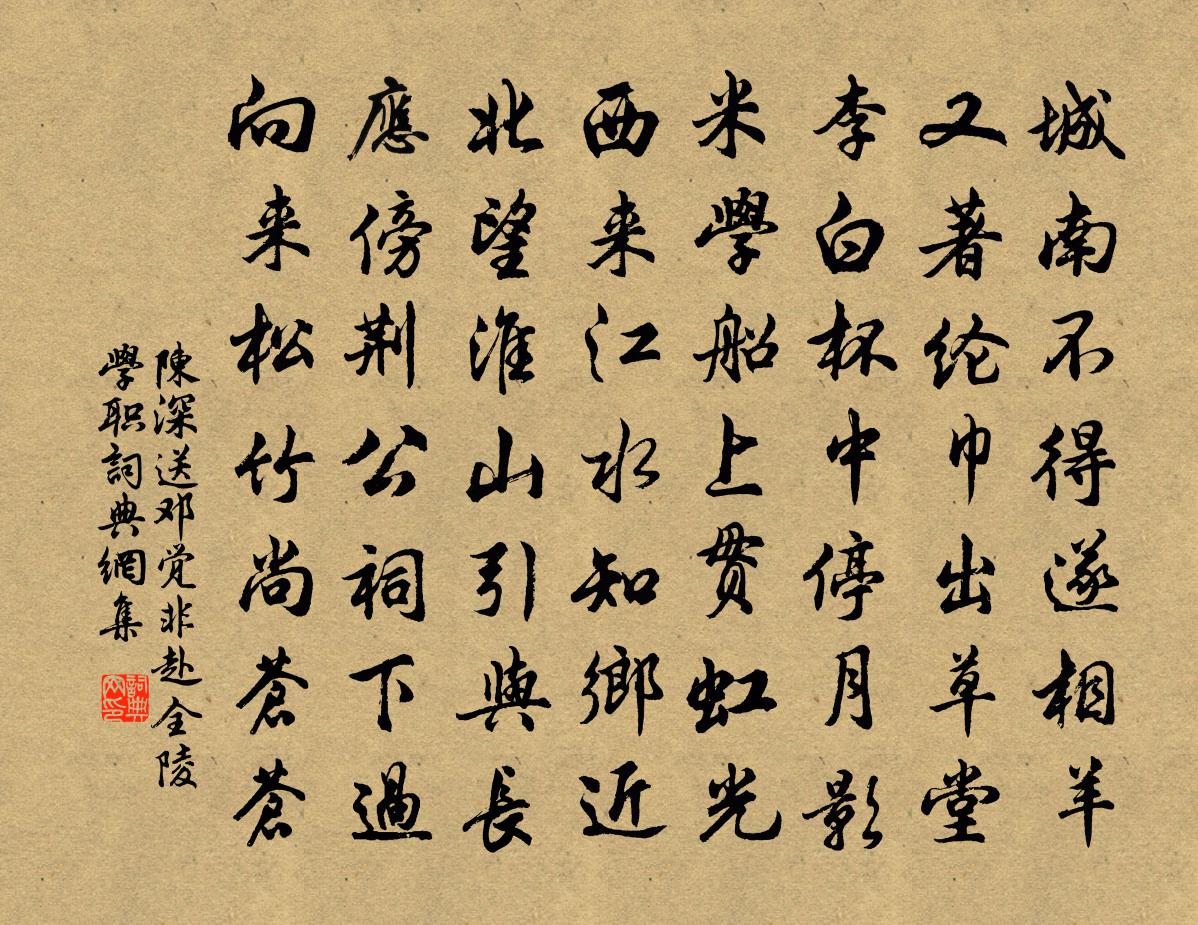 城南不得遂相羊
又著纶巾出草堂
李白杯中停月影
米學船上贯虹光
西来江水知鄉近
北望淮山引與長
應傍荆公祠下過
向来松竹尚蒼蒼
陳深送邓觉非赴全陵
學职詞典網集
詞典网印